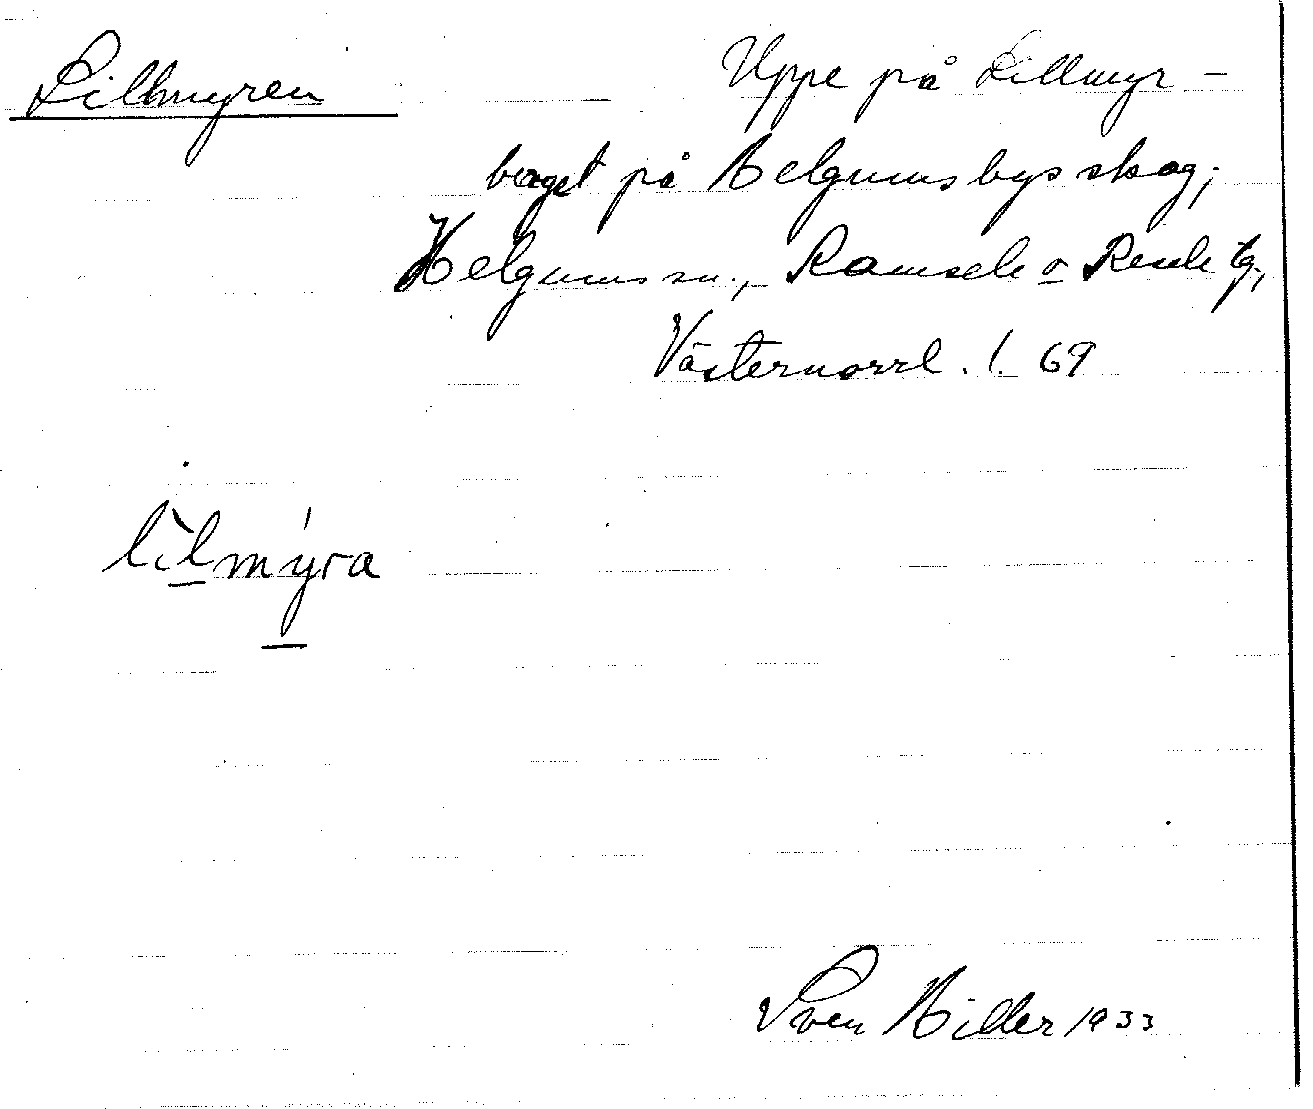 Lillmyren
Uppe på Lillmyr-
berget på Helgums bys skog;
Helgums sn., Ramsele o Resele tg.,
Västernorrl. l. 69
lìlmýra
Sven Hiller 1933